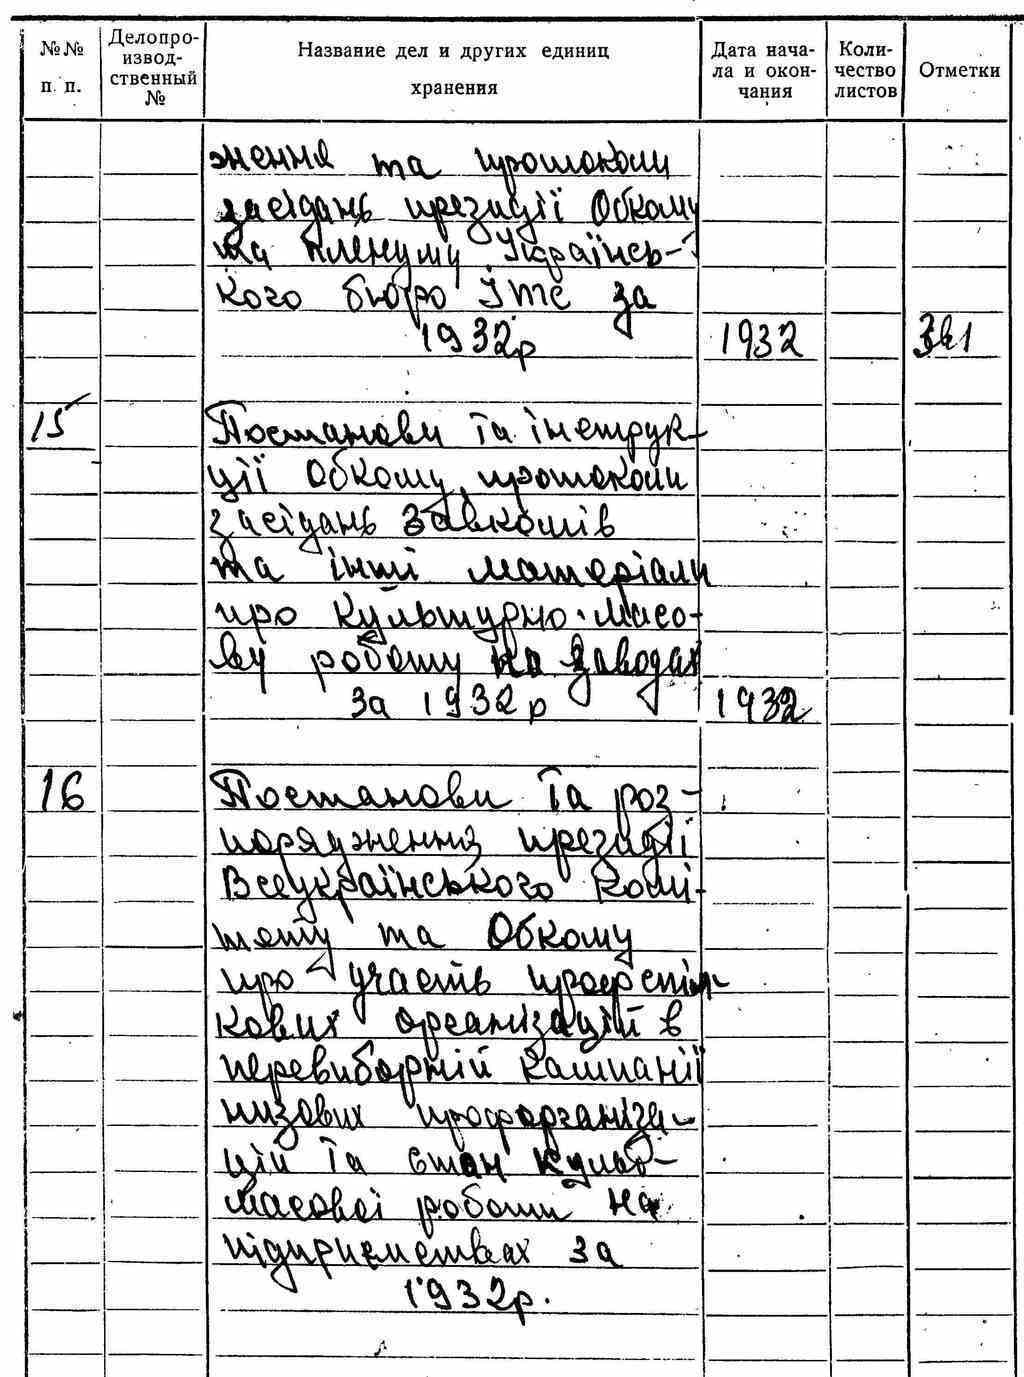 №№ п. п.
Делопро-
извод-
ственный
№
Название дел и других единиц
хранения
Дата нача-
ла и окон-
чания
Коли-
чество
листов
Отметки
ження та протоколи
засідань президії Обкому
та пленуму Українсь-
кого бюро ІТС за
1932р 1932
15 Постанови та інструк-
ції Обкому, протоколи
засідань завкомів
та інші матеріали
про культурно-масо-
ву роботу на заводах
за 1932р 1932
16 Постанови та роз-
порядження президії
Всеукраїнського комі-
тету та Обкому
про участь профспіл-
кових організацій в
перевиборній кампанії
низових профорганіза-
цій та стан культ-
масової роботи на
підприємствах за
1932р.